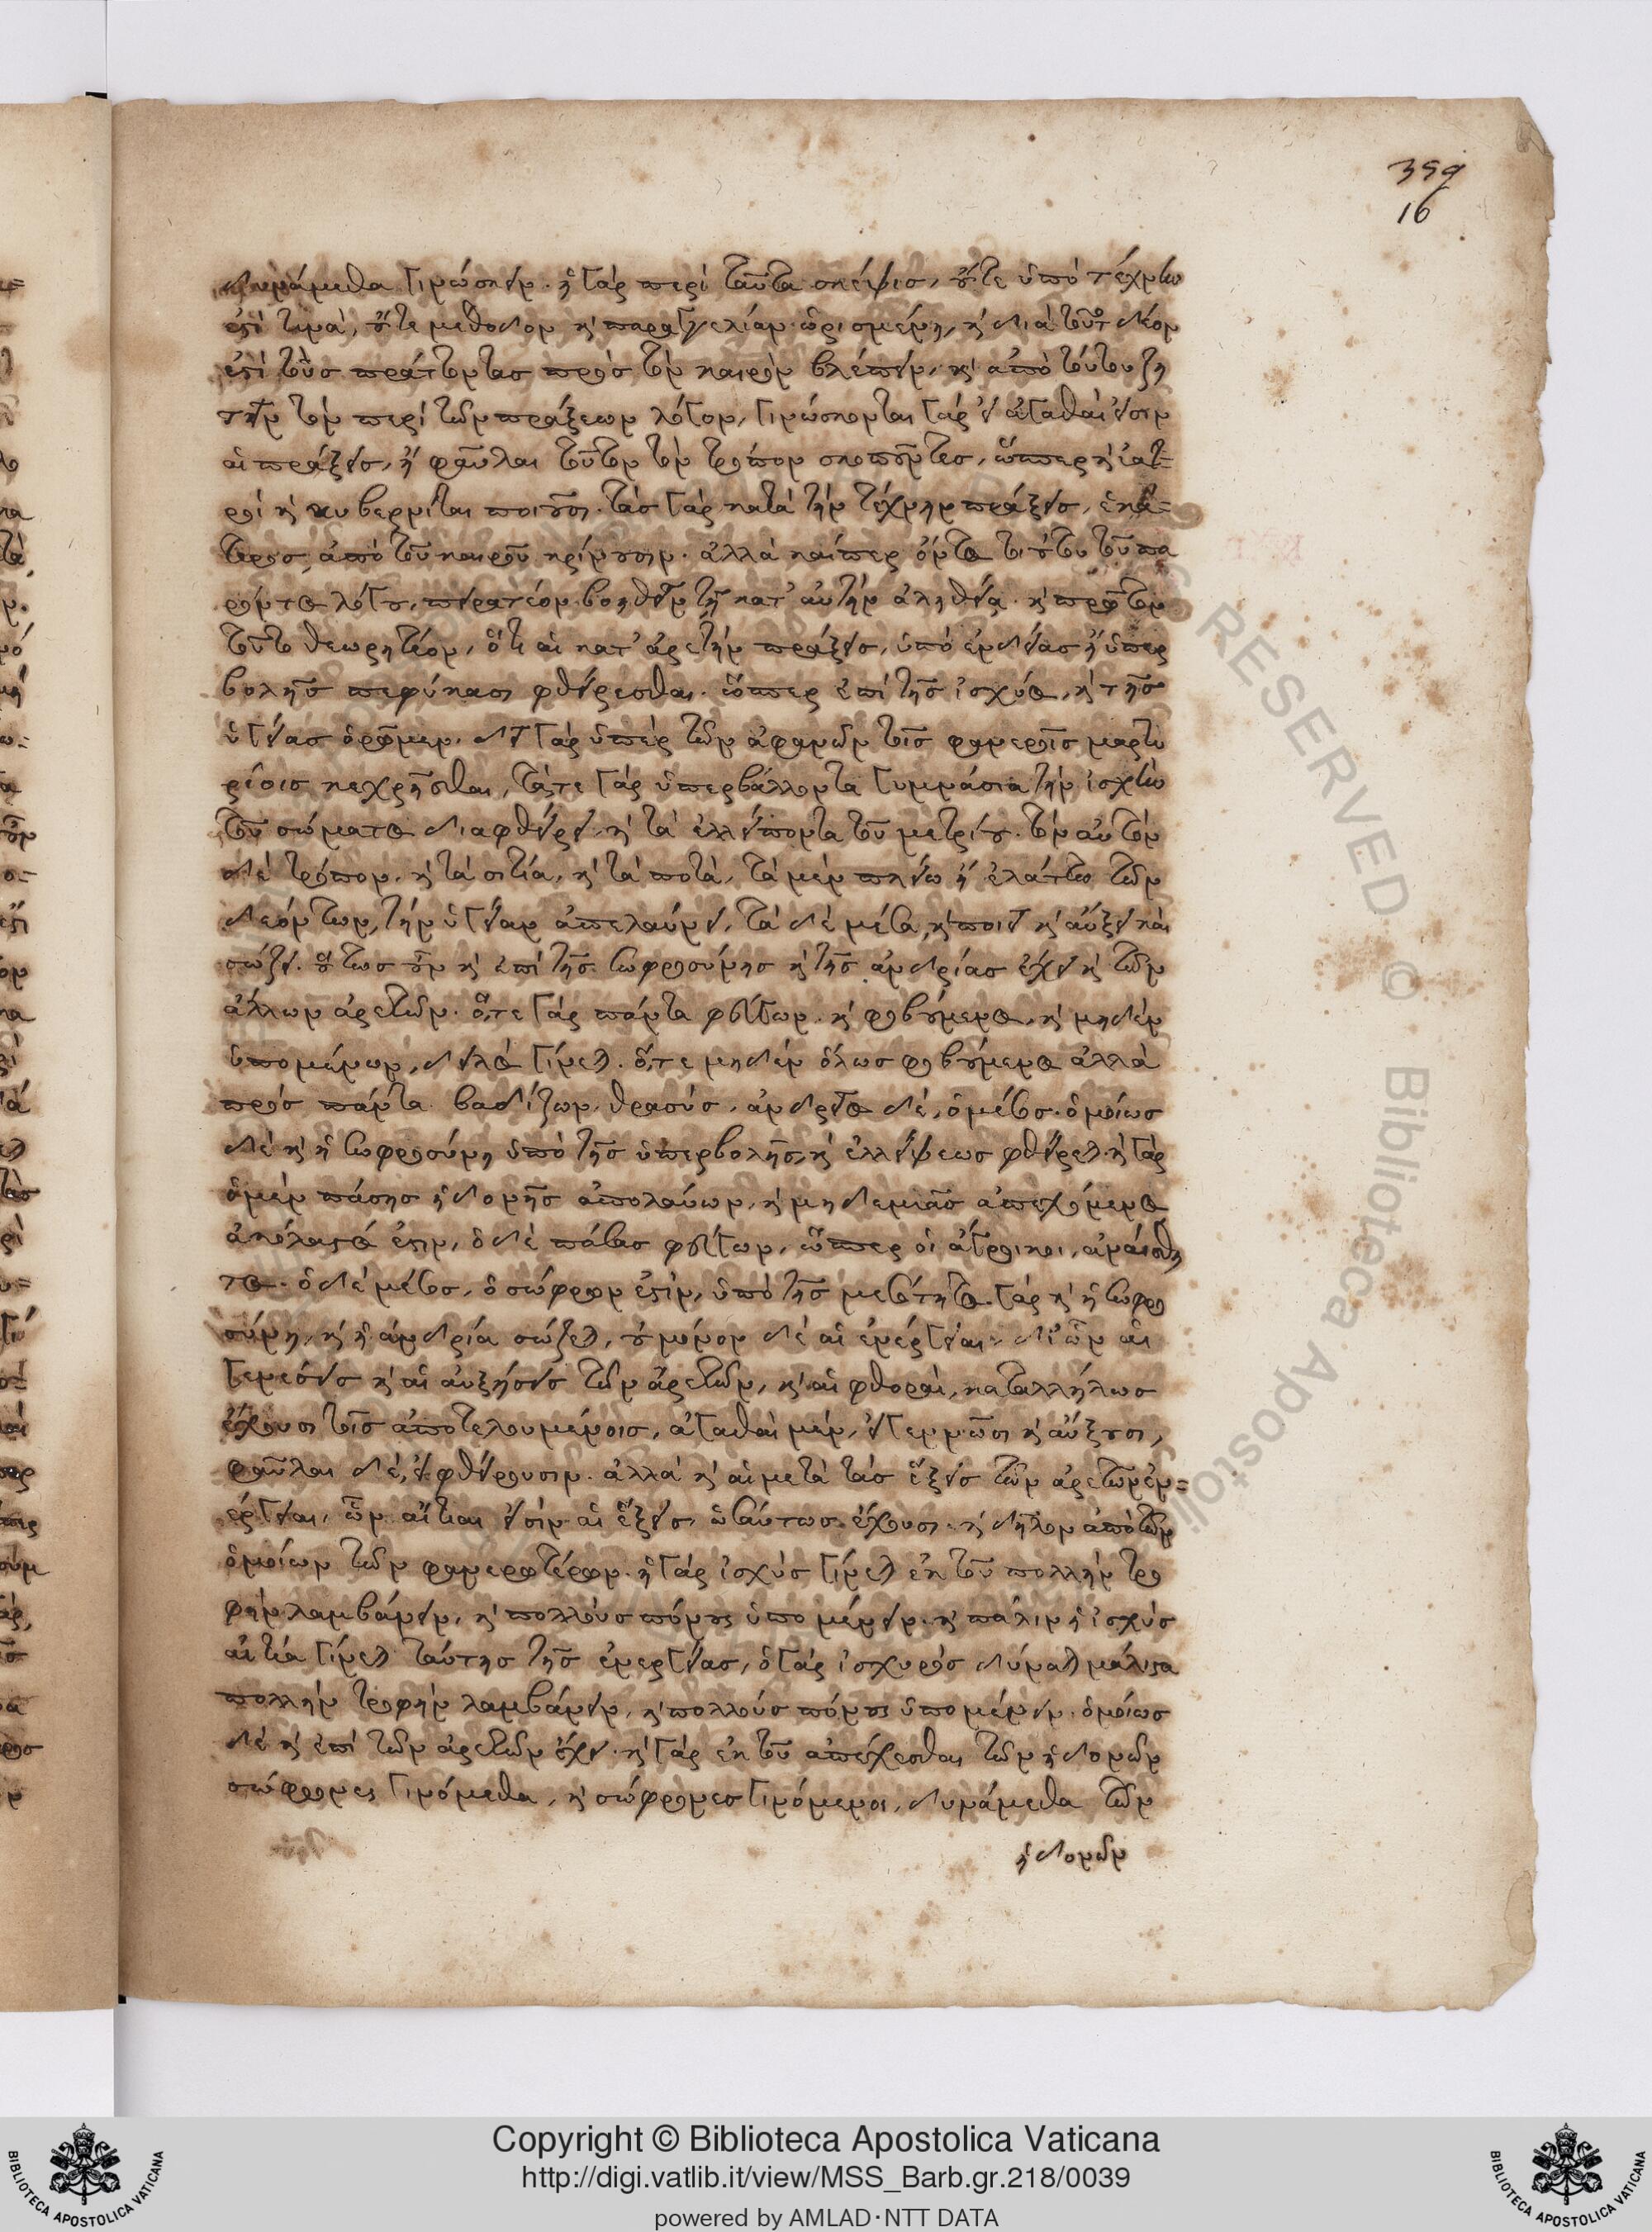 399
16
δυνάμεθα γινώσκειν. ἡ γὰρ περὶ ταῦτα σκέψις, οὔτε ὑπὸ τέχνην
ἐστί τινα, οὔτε μέθοδον κ̀ παραγγελίαν ὡρισμένη, κ̀ διὰ τοῦτο δέον
ἐστὶ τοὺς πράττοντας πρὸς τὸν καιρὸν βλέπειν, κ̀ ἀπὸ τούτου ζη
τεῖν τὸν περὶ τῶν πράξεων λόγον, γινώσκονται γὰρ εἰ ἀγαθαί εἰσιν
αἱ πράξεις, ἢ φαῦλαι τοῦτον τὸν τρόπον σκοποῦντες, ὥσπερ κ̀ ἰατ=
ροὶ κ̀ κυβερνῖται ποιοῦσι. τὰς γὰρ κατὰ τὴν τέχνην πράξεις, ἑκά=
τερος ἀπὸ τοῦ καιροῦ κρίνουσιν. ἀλλὰ καίπερ ὄντος τοιούτου τοῦ πα
ρόντος λόγου, πειρατέον βοηθεῖν τῇ κατ' αὐτὴν ἀληθείᾳ. κ̀ πρῶτον
τοῦτο θεωρητέον, ὅτι αἱ κατ' ἀρετὴν πράξεις, ὑπὸ ἐνδείας ἢ ὑπερ
βολῆς πεφύκασι φθείρεσθαι. ὥσπερ ἐπὶ τῆς ἰσχύος, κ̀ τῆς
ὑγείας ὁρῶμεν. δεῖ γὰρ ὑπὲρ τῶν ἀφανῶν τοῖς φανεροῖς μαρτυ
ρίοις κεχρῆσθαι, τάτε γὰρ ὑπερβάλλοντα γυμνάσια τὴν ἰσχὺν
τοῦ σώματος διαφθείρει, κ̀ τὰ ἐλλείποντα τοῦ μετρίου. τὸν αὐτὸν
δὲ τρόπον, κ̀ τὰ σιτία, κ̀ τὰ ποτὰ, τὰ μὲν πλείω ἢ ἐλάττω τῶν
δεόντων, τὴν ὑγείαν ἀπελαύνει, τὰ δὲ μέσα, κ̀ ποιεῖ κ̀ αὔξει καὶ
σώζει. οὕτως οὖν κ̀ ἐπὶ τῆς σωφροσύνης κ̀ τῆς ἀνδρίας ἔχει κ̀ τῶν
ἄλλων ἀρετῶν. ὅ,τε γὰρ πάντα φεύγων. κ̀ φοβούμενος, κ̀ μηδὲν
ὑπομένων, δειλὸς γίνεται. ὅ,τε μηδὲν ὅλως φοβούμενος ἀλλὰ
πρὸς πάντα βαδίζων, θρασύς. ἀνδρεῖος δὲ, ὁ μέσος. ὁμοίως
δὲ κ̀ ἡ σωφροσύνη ὑπὸ τῆς ὑπερβολῆς, κ̀ ἐλλείψεως φθείρεται. κ̀ γὰρ
ὁ μὲν πάσης ἡδονῆς ἀπολαύων, κ̀ μηδεμιᾶς ἀπεχόμενος
ἀκόλαστος ἐστιν, ὁ δὲ πάσας φεύγων, ὥσπερ οἱ ἄγροικοι, ἀναίσθη
τος. ὁ δὲ μέσος, ὁ σώφρων ἐστίν, ὑπὸ τῆς μεσότητος γὰρ κ̀ ἡ σωφρο
σύνη, κ̀ ἡ ἀνδρία σώζεται, οὐ μόνον δὲ αἱ ἐνέργειαι, δι' ὧν αἱ
γενέσεις κ̀ αἱ αὐξήσεις τῶν ἀρετῶν, κ̀ αἱ φθοραὶ, καταλλήλως
ἔχουσι τοῖς ἀποτελουμένοις, ἀγαθαὶ μὲν, εἰ γεννῶσι κ̀ αὔξουσι,
φαῦλαι δὲ, εἰ φθείρουσιν. ἀλλὰ κ̀ αἱ μετὰ τὰς ἕξεις τῶν ἀρετῶν ἐν=
έργειαι, ὧν αἴτιαι εἰσὶν αἱ ἕξεις, ὡσαύτως ἔχουσι. κ̀ δῆλον ἀπὸ τῶν
ὁμοίων τῶν φανερωτέρων. ἡ γὰρ ἰσχὺς γίνεται ἐκ τοῦ πολλὴν τρο
φὴν λαμβάνειν, κ̀ πολλοὺς πόνους ὑπομένειν. κ̀ πάλιν ἡ ἰσχὺς
αἰτία γίνεται ταύτης τῆς ἐνεργείας, ὁ γὰρ ἰσχυρὸς δύναται μάλιστα
πολλὴν τροφὴν λαμβάνειν, κ̀ πολλοὺς πόνους ὑπομένειν. ὁμοίως
δὲ κ̀ ἐπὶ τῶν ἀρετῶν ἔχει. κ̀ γὰρ ἐκ τοῦ ἀπέχεσθαι τῶν ἡδονῶν
σώφρονες γινόμεθα, κ̀ σώφρονες γινόμενοι, δυνάμεθα τῶν
ἡδονῶν
Copyright © Biblioteca Apostolica Vaticana
http://digi.vatlib.it/view/MSS_Barb.gr.218/0039
powered by AMLAD·NTT DATA